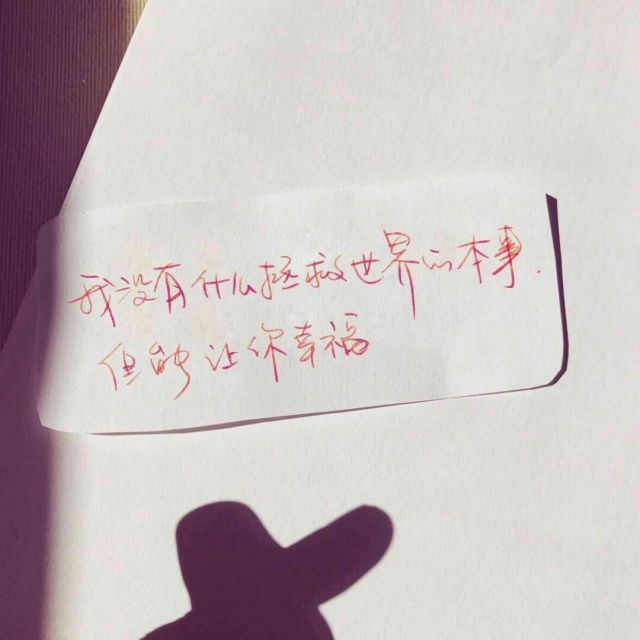 我没有什么拯救世界的本事.
但能让你幸福